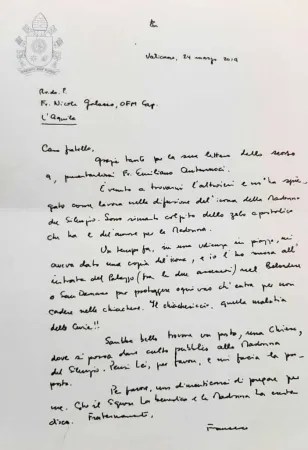 Vaticano, 24 marzo 2019
Rev.do P.
Fr. Nicola Galasso, OFM Cap.
L'Aquila
Caro fratello,
Grazie tanto per la sua lettera dello scorso
9, presentandomi Fr. Emiliano Antenucci.
È venuto a trovarmi l'altro ieri e m'ha spie-
gato come lavora nella diffusione dell'icona della Madonna
del Silenzio. Sono rimasto colpito dello zelo apostolico
che ha e del amore per la Madonna.
Un tempo fa, in una udienza in piazza, mi
aveva dato una copia dell'icona, e io l'ho messa all'
entrata del Palazzo (tra le due ascensori) nel Belvedere
o San Damaso per proteggere ognuno ch'entra per non
cadere nelle chiacchiere. Il chiacchiericcio, quella malattia
della Curia!!
Sarebbe bello trovare un posto, una Chiesa,
dove si possa dare culto pubblico alla Madonna
del Silenzio. Pensi Lei, per favore, e mi faccia la pro-
posta.
Per favore, non dimenticarsi di pregare per
me. Che il Signore La benedica e la Madonna La custo-
disca. Fraternamente,
Francesco